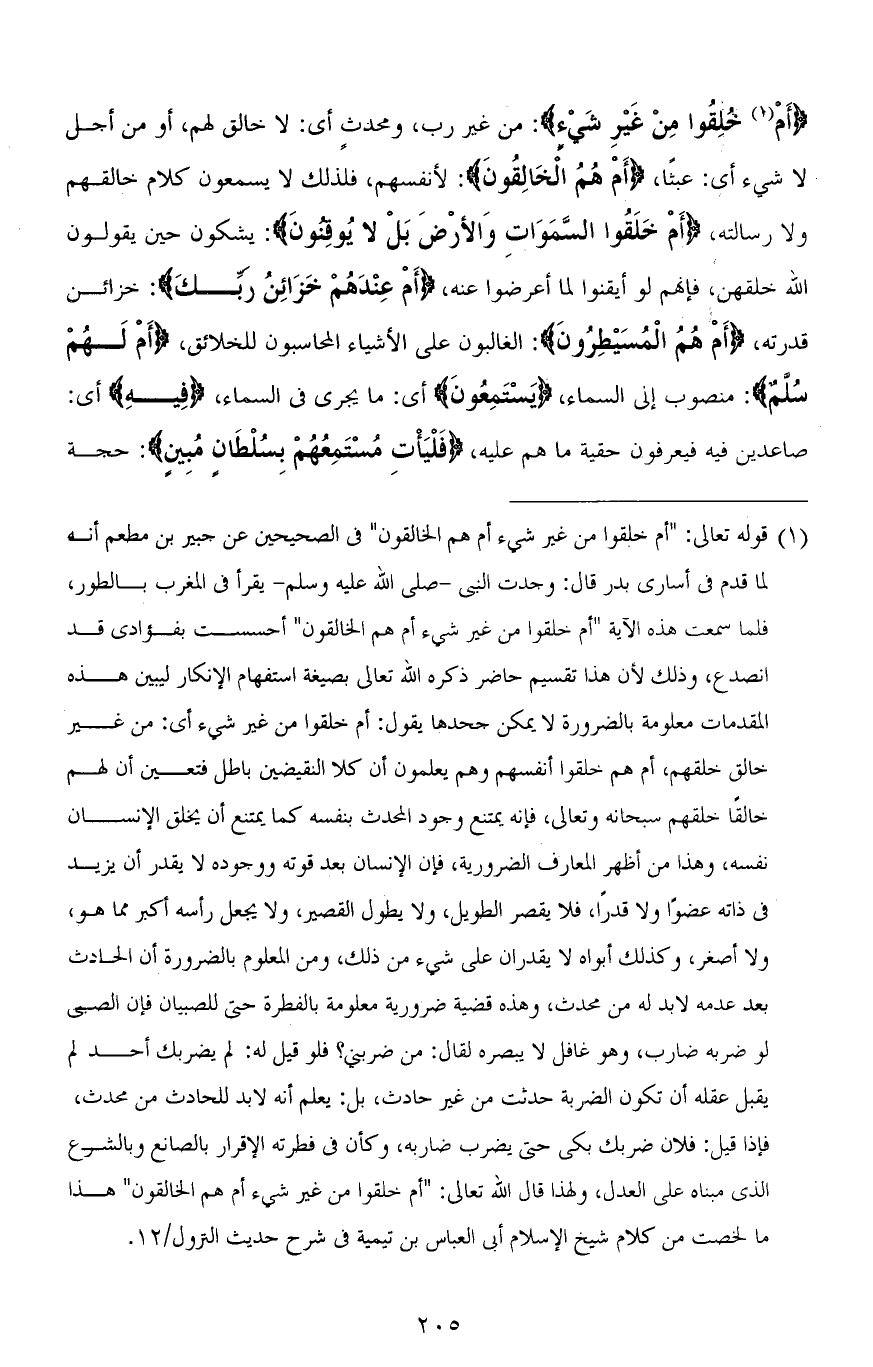 ﴿أَمْ(١) خُلِقُوا مِنْ غَيْرِ شَيْءٍ﴾: من غير رب، ومحدثٍ أى: لا خالق لهم، أو من أجل
لا شيء أى: عبثًا، ﴿أَمْ هُمُ الْخَالِقُونَ﴾: لأنفسهم، فلذلك لا يسمعون كلام خالقهم
ولا رسالته، ﴿أَمْ خَلَقُوا السَّمَوَاتِ وَالأَرْضَ بَلْ لا يُوقِنُونَ﴾: يشكون حين يقولون
الله خلقهن، فإنهم لو أيقنوا لما أعرضوا عنه، ﴿أَمْ عِنْدَهُمْ خَزَائِنُ رَبِّكَ﴾: خزائن
قدرته، ﴿أَمْ هُمُ الْمُسَيْطِرُونَ﴾: الغالبون على الأشياء المحاسبون للخلائق، ﴿أَمْ لَهُمْ
سُلَّمٌ﴾: منصوب إلى السماء، ﴿يَسْتَمِعُونَ﴾ أى: ما يجرى فى السماء، ﴿فِيهِ﴾ أى:
صاعدين فيه فيعرفون حقية ما هم عليه، ﴿فَلْيَأْتِ مُسْتَمِعُهُمْ بِسُلْطَانٍ مُبِينٍ﴾: حجة
(١) قوله تعالى: "أم خلقوا من غير شيء أم هم الخالقون" فى الصحيحين عن جبير بن مطعم أنه
لما قدم فى أسارى بدر قال: وجدت النبى -صلى الله عليه وسلم- يقرأ فى المغرب بالطور،
فلما سمعت هذه الآية "أم خلقوا من غير شيء أم هم الخالقون" أحسست بفؤادى قد
انصدع، وذلك لأن هذا تقسيم حاضر ذكره الله تعالى بصيغة استفهام الإنكار ليبين هذه
المقدمات معلومة بالضرورة لا يمكن جحدها يقول: أم خلقوا من غير شيء أى: من غير
خالق خلقهم، أم هم خلقوا أنفسهم وهم يعلمون أن كلا النقيضين باطل فتعين أن لهم
خالقًا خلقهم سبحانه وتعالى، فإنه يمتنع وجود المحدث بنفسه كما يمتنع أن يخلق الإنسان
نفسه، وهذا من أظهر المعارف الضرورية، فإن الإنسان بعد قوته ووجوده لا يقدر أن يزيد
فى ذاته عضوًا ولا قدرًا، فلا يقصر الطويل، ولا يطول القصير، ولا يجعل رأسه أكبر مما هو،
ولا أصغر، وكذلك أبواه لا يقدران على شيء من ذلك، ومن المعلوم بالضرورة أن الحادث
بعد عدمه لابد له من محدث، وهذه قضية ضرورية معلومة بالفطرة حتى للصبيان فإن الصبى
لو ضربه ضارب، وهو غافل لا يبصره لقال: من ضربني؟ فلو قيل له: لم يضربك أحد لم
يقبل عقله أن تكون الضربة حدثت من غير حادث، بل: يعلم أنه لابد للحادث من محدث،
فإذا قيل: فلان ضربك بكى حتى يضرب ضاربه، وكأن فى فطرته الإقرار بالصانع وبالشرع
الذى مبناه على العدل، ولهذا قال الله تعالى: "أم خلقوا من غير شيء أم هم الخالقون" هذا
ما لخصت من كلام شيخ الإسلام أبى العباس بن تيمية فى شرح حديث النزول/١٢.
٢٠٥